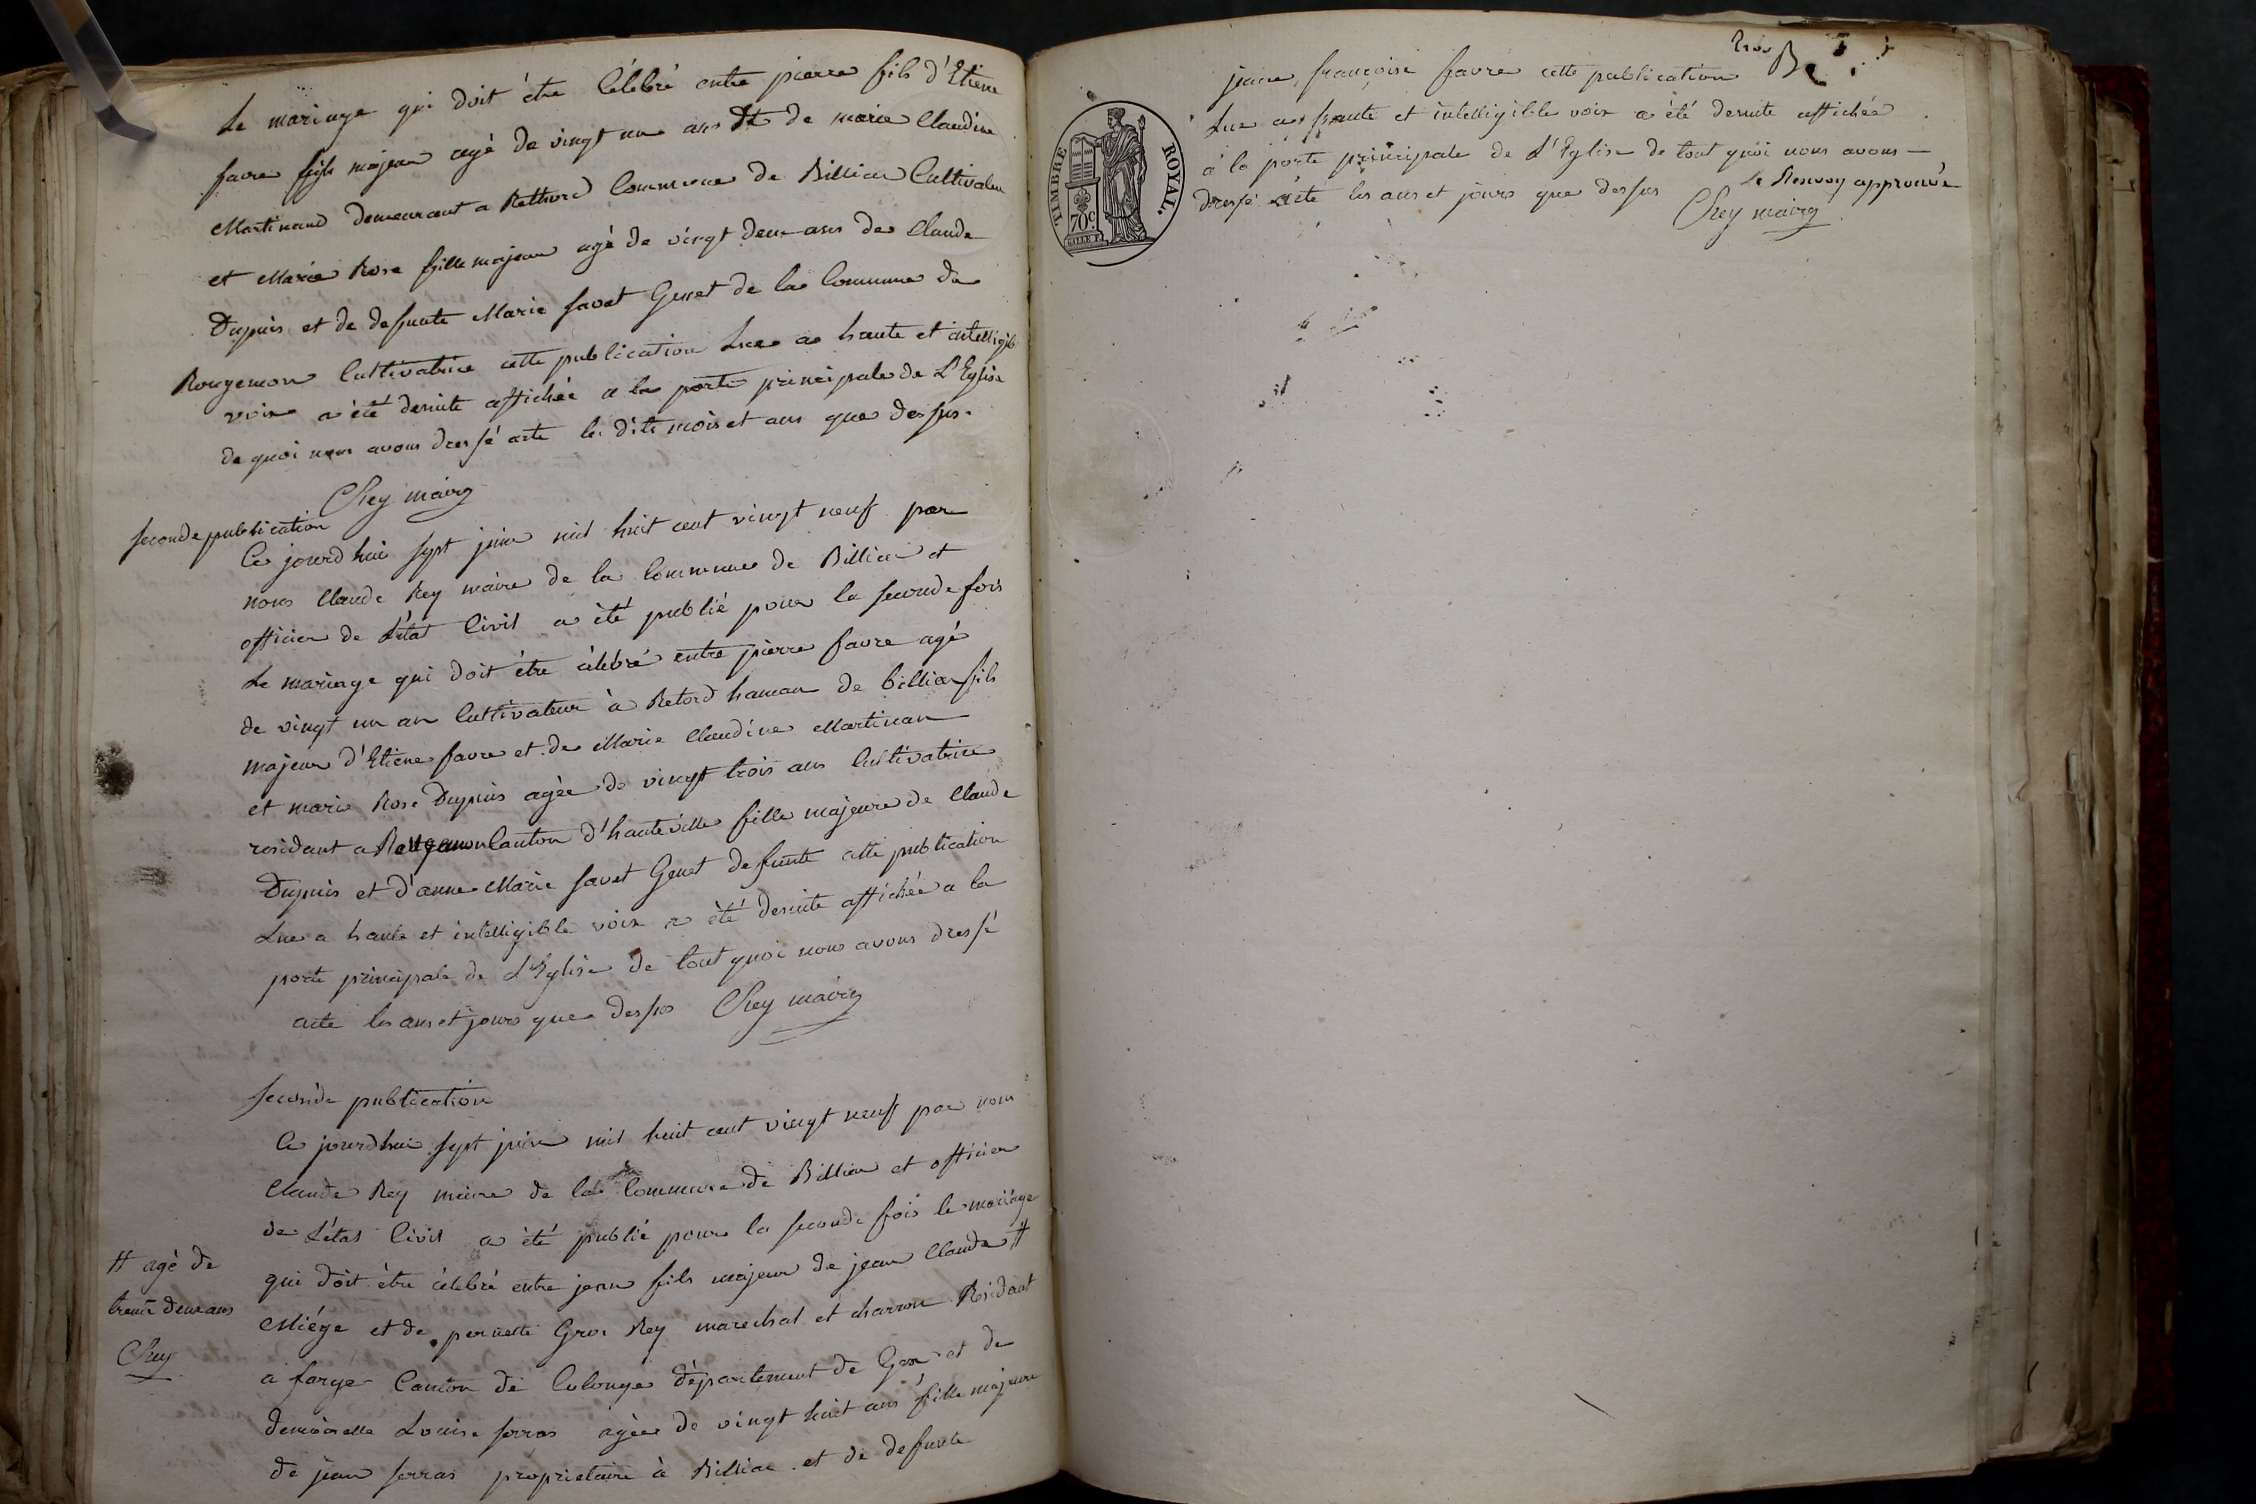 Le mariage qui doit être Célébré entre pierre fils d'Etiene
favre fils majeur agé de vingt un ans Et de marie Claudine
Martinand demeurant a Rethord Commune de Billiac Cultivateur
et Marie Rose fille majeur agé de vingt deux ans de Claude
Dupuis et de defunte Marie favet Genet de la Commune de
Rougemon Cultivatrice cette publication Lue a haute et intelligib
voix a été desuite affichée a la porte principale de L'Eglise
de quoi nous avons dressé acte les dits mois et ans que dessus.
CRey maire
seconde publication
Ce jourd'hui sept juin mil huit cent vingt neuf par
nous Claude Rey maire de la Commune de Billiac et
officier de L'état Civil a été publié pour la seconde fois
Le mariage qui doit être célébré entre pierre favre agé
de vingt un an Cultivateur à Retord hamau de billiac fils
majeur d'Etiene favre et de Marie Claudine Martinan
et marie Rose Dupuis agée de vingt trois ans Cultivatrice
residant a Rougemon Canton d'hauteville fille majeure de Claude
Dupuis et d'anne Marie favet Genet defunte cette publication
Lue a haute et intelligible voix a été desuite affichée a la
porte principale de L'Eglise de tout quoi nous avons dressé
acte les ans et jours que dessus CRey maire
seconde publication
Ce jourdhui sept juin mil huit cent vingt neuf par nous
Claude Rey maire de la Commune de Billiac et officier
de L'état Civil a été publié pour la seconde fois le mariage
qui doit être célébré entre jean fils majeur de jean Claude #
# agé de
trente deux ans
CRey
Miége et de pernette Gros Rey marechal et charron Residant
a farge Canton de Colonge département de Gex et de
demoiselle Louise serras agée de vingt huit ans fille majeure
de jean serras proprietaire à Billiac et de defunte
jeane françoise favre cette publication
Lue a haute et intelligible voix a été desuite affichée
à la porte principale de L'Eglise de tout quoi nous avons
dressé acte les ans et jours que dessus Le Renvoy approuvé
CRey maire
TIMBRE ROYAL.
70c